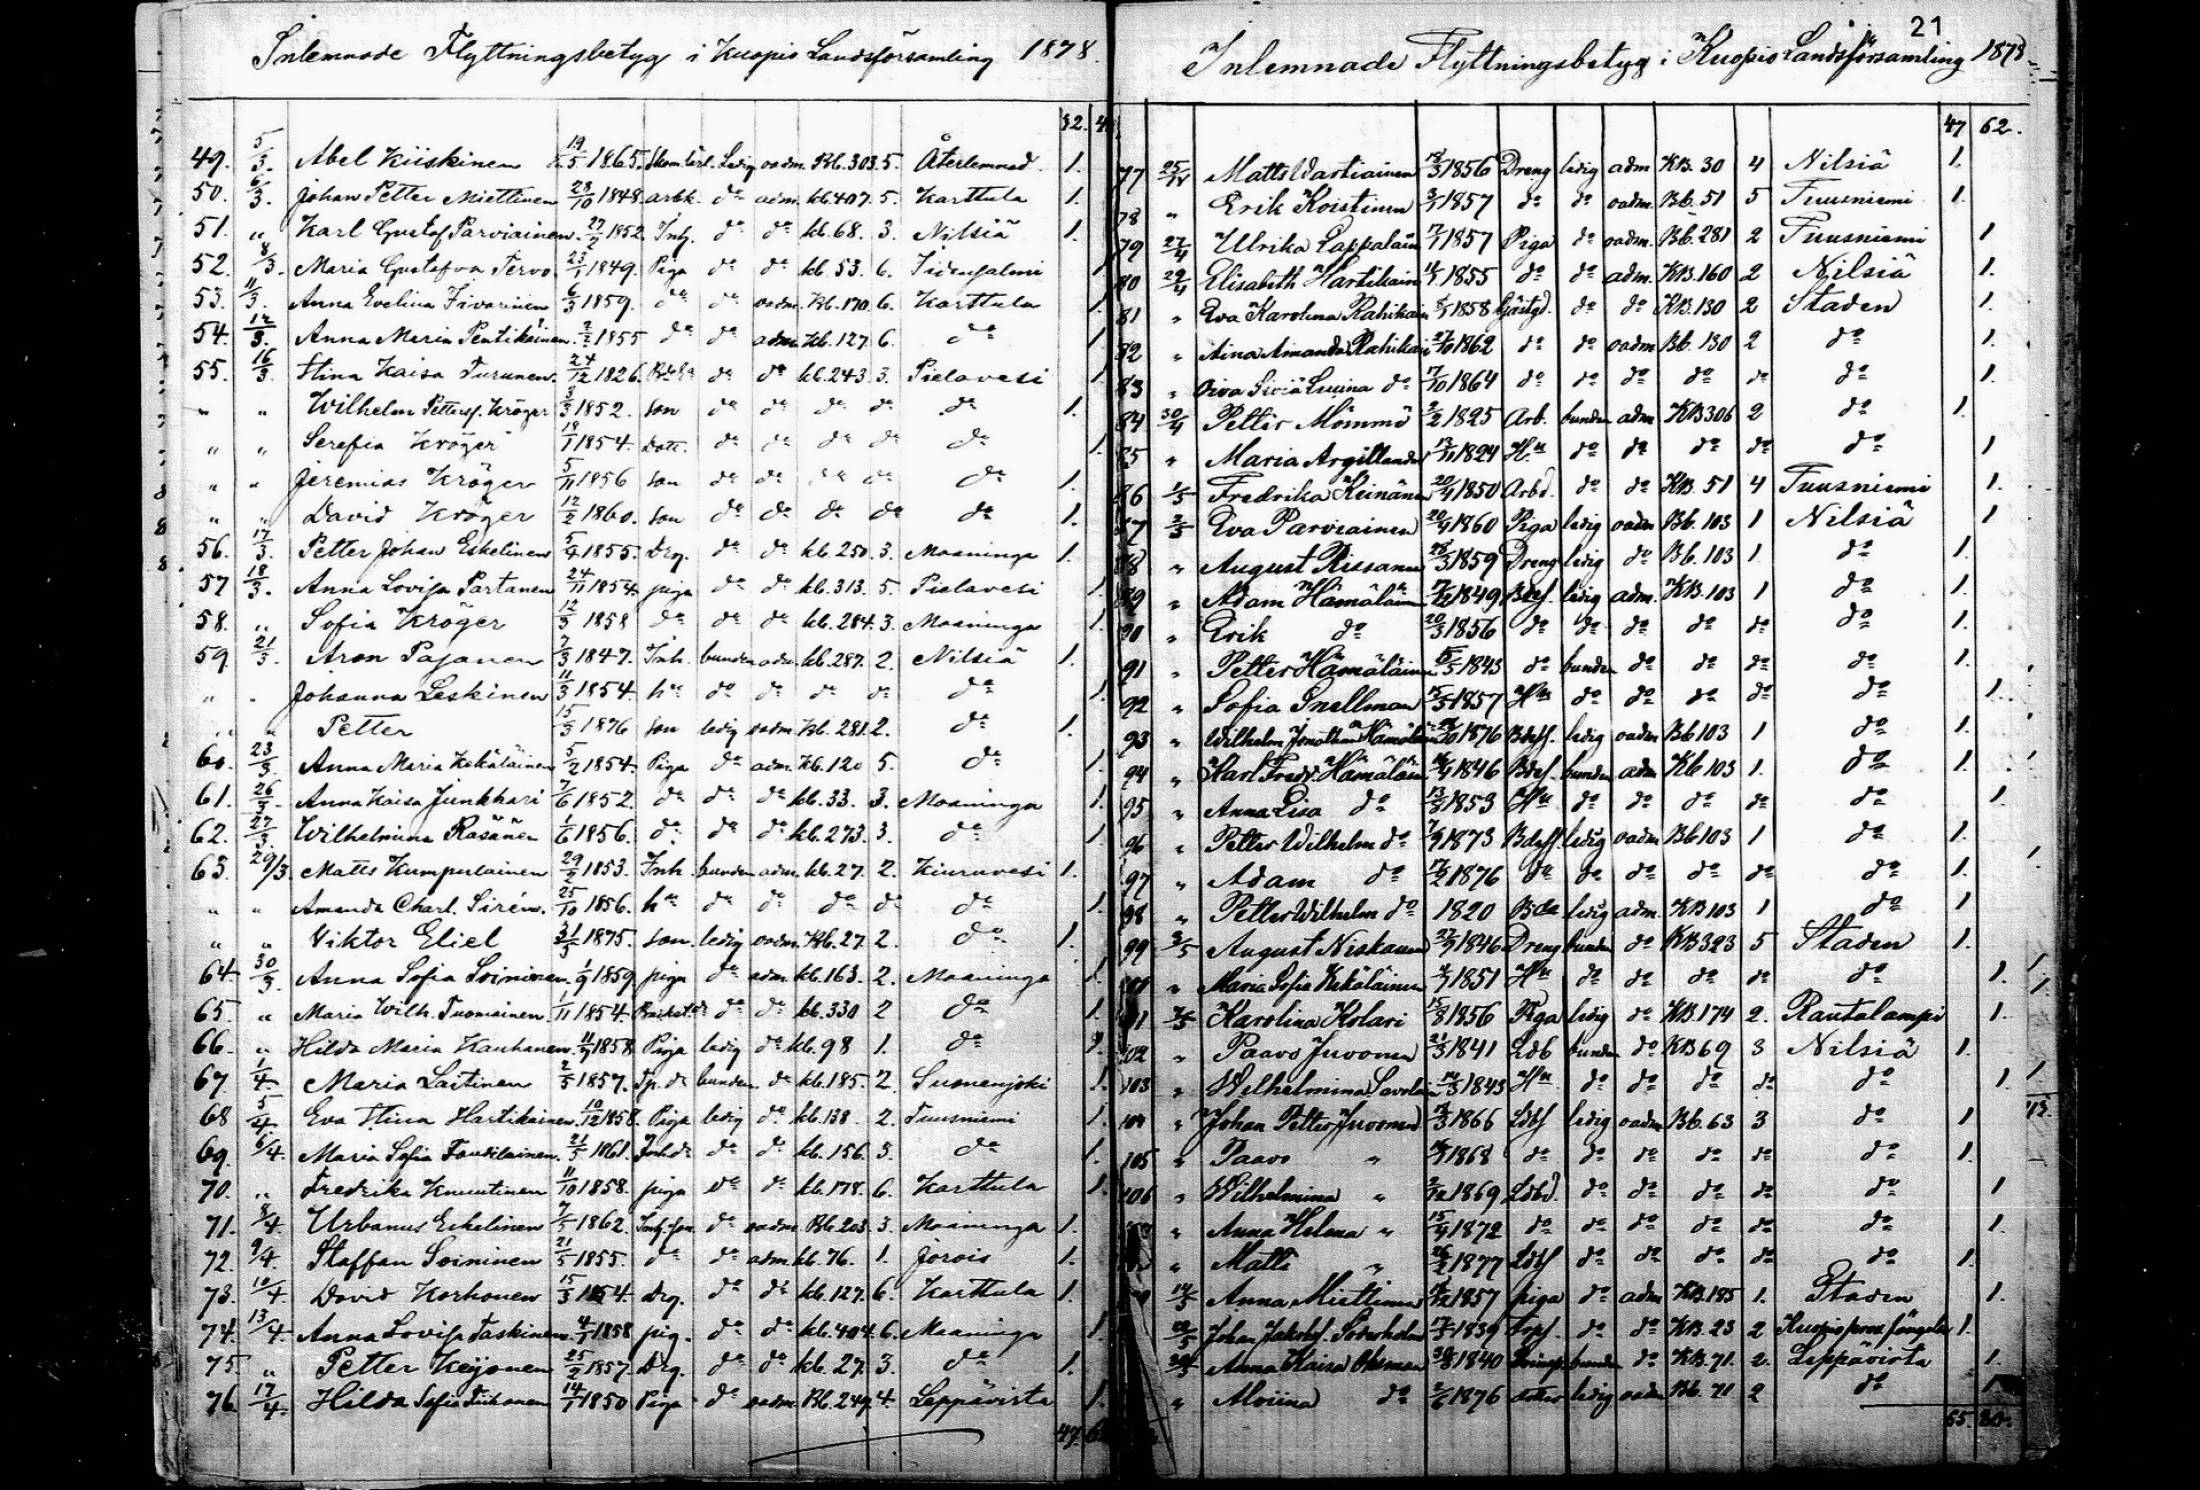 Inlemnade Flyttningsbetyg i Kuopio Landsförsamling 1878.
32. 4
49. 5/3. Abel Kiiskinen 19/5 1865. Ledig oadm. Bb. 303. 5. Återlemnad. 1.
50. 6/3. Johan Petter Miettinen 28/10 1848. arbk. do adm. kb. 407. 5. Karttula 1.
51. " Karl Gustaf Parviainen. 27/2 1852. Inh. do do kb. 68. 3. Nilsiä 1.
52. 8/3. Maria Gustafva Tervo 23/1 1849. Piga do do kb. 53. 6. Idensalmi 1
53. 11/3. Anna Evelina Tivarinen 6/3 1859. do do oadm. Kb. 170. 6. Karttula 1
54. 12/3. Anna Maria Pentikäinen. 2/2 1855 do do adm. Kb. 127. 6. do 1
55. 16/3. Stina Kaisa Turunen. 24/12 1826. do do kb. 243. 3. Pielavesi 1
" " Wilhelm Petterss. Kröger 3/3 1852. son do do do do do 1.
" " Serefia Kröger 18/1 1854. Dott. do do do do do 1
" " Jeremias Kröger 5/11 1856 son do do do do do 1.
" " David Kröger 12/2 1860. son do do do do do 1.
56. 17/3. Petter Johan Eskelinen 5/4 1855. Drg. do do kb. 250. 3. Maaninga 1.
57 18/3. Anna Lovisa Partanen 24/11 1854. piga do do kb. 313. 5. Pielavesi 1
58. " Sofia Kröger 12/3 1858 do do do kb. 284. 3. Maaninga 1
59 21/3. Aron Pajanen 7/3 1847. Inh. bunden adm. kb. 287. 2. Nilsiä 1.
" " Johanna Leskinen 11/3 1854. hu do do do do do 1.
" " Petter 15/3 1876 son ledig oadm. Kb. 281. 2. do 1.
60. 23/3. Anna Maria Kekäläinen 5/2 1854. Piga do adm. Kb. 120 5. do 1.
61. 26/3. Anna Kaisa Junkkari 7/6 1852. do do do kb. 33. 3. Maaninga 1.
62. 27/3. Wilhelmina Räsänen 1/6 1856. do do do kb. 273. 3. do 1
63. 29/3. Matts Kumpulainen 29/2 1853. Inh. bunden adm. kb. 27. 2. Kiuruvesi 1.
" " Amanda Charl. Sirén. 25/10 1856. hu do do do do do 1.
" " Viktor Eliel 31/3 1875. son. ledig oadm. Kb. 27. 2. do 1.
64. 30/3. Anna Sofia Soininen. 1/9 1859. piga do adm. kb. 163. 2. Maaninga 1.
65. " Maria Wilh. Tuomainen. 1/11 1854. do do kb. 330 2 do 1.
66. " Hilda Maria Kauhanen. 11/9 1858 Piga ledig do kb. 98 1. do 1.
67. 1/4. Maria Laitinen 2/5 1857. bunden do kb. 185. 2. Suonenjoki 1.
68 5/4. Eva Stina Hartikainen. 10/12 1858. Piga ledig do kb. 138 2. Tuusniemi 1.
69. 6/4. Maria Sofia Taudilainen. 21/5 1861. do do kb. 156. 3. do 1.
70. " Fredrika Knuutinen 11/10 1858. piga do do kb. 178. 6. Karttula 1.
71. 8/4. Urbanus Eskelinen 7/5 1862. do oadm. Bb. 203. 3. Maaninga 1.
72. 9/4. Staffan Soininen 21/5 1855. do do adm. kb. 76. 1. Jorois 1.
73. 10/4. David Korhonen 15/3 1854. Drg. do do kb. 127. 6. Karttula 1.
74. 13/4. Anna Lovisa Taskinen. 4/1 1858 pig. do do kb. 404. 6. Maaninga 1.
75. " Petter Keijonen 25/2 1857. Drg. do do kb. 27. 3. do 1.
76. 17/4. Hilda Sofia Tiihonen 14/1 1850 Piga do oadm. Bb. 249. 4. Leppävirta 1.
47. 6
21
Inlemnade Flyttningsbetyg i Kuopio Landsförsamling 1878
47 62.
77 25/4 Matts Wartiainen 18/3 1856 Dreng ledig adm KB. 30 4 Nilsiä 1.
78 " Erik Koistinen 3/1 1857 do do oadm. Bb. 51 5 Tuusniemi 1.
79 27/4 Ulrika Lappalain 17/1 1857 Piga do oadm. Bb. 281 2 Tuusniemi 1
80 29/4 Elisabeth Hartikain 11/1 1855 do do adm. KB. 160 2 Nilsiä 1.
81 " Eva Karolina Rahikain 1858 do do KB. 130 2 Staden 1.
82 " Aina Amanda Rahikai 27/10 1862 do do oadm Bb. 130 2 do 1.
83 " do 17/10 1864 do do do do do do 1.
84 30/4 Petter Mömmö 2/2 1825 Arb. bunden adm. KB 306 2 do 1.
85 " Maria Argillander 13/11 1824 Hu do do do do do 1
86 1/5 Fredrika Keinänen 20/4 1850 Arbd. do do KB. 51 4 Tuusniemi 1.
87 2/5 Eva Parviainen 20/4 1860 Piga ledig oadm Bb. 103 1 Nilsiä 1
88 " August Rissanen 28/3 1859 Dreng ledig do Bb. 103 1 do 1.
89 " Adam Hämäläin 17/12 1849 ledig adm. KB. 103 1 do 1.
90 " Erik do 20/3 1856 do do do do do do 1.
91 " Petter Hämäläinen 1843 do bunden do do do do 1.
92 " Sofia Snellman 15/5 1857 Hu do do do do do 1.
93 " Wilhelm Jonathan Hämäläinen 1876 ledig oadm Bb 103 1 do 1.
94 " Karl Fredr. Hämäläin 1846 bunden adm Kb 103 1. do 1.
95 " Anna Lisa do 13/8 1853 Hu do do do do do 1.
96 " Petter Wilhelm do 7/9 1873 ledig oadm Bb 103 1 do 1.
97 " Adam do 17/2 1876 do do do do do do 1
98 " Petter Wilhelm do 1820 ledig adm. KB 103 1 do 1
99 3/5 August Niskanen 27/9 1846 Dreng bunden do KB 323 5 Staden 1.
" Maria Sofia Kekäläinen 1851 Hu do do do do do 1.
Karolina Kolari 15/8 1856 Piga ledig do KB. 174 2. Rautalampi 1.
102 " Paavo Juvonen 21/3 1841 Ldb bunden do KB 69 3 Nilsiä 1.
103 " Wilhelmina Savolain 1843 Hu do do do do do 1.
104 " Johan Petter Juvonen 1866 Ldbs ledig oadm Bb. 63 3 do 1
105 " Paavo " 1868 do do do do do do 1.
106 " Wilhelmina " 1869 Ldbd. do do do do do 1
" Anna Helena " 15/4 1872 do do do do do do 1.
" Matti " 1877 Ldbs do do do do do 1.
14/5 Anna Miettinen 1857 piga do adm KB. 185 1. Staden 1.
Johan Jakobs. Söderholm 17/3 1839 do do KB. 23 2 1.
Anna Kaisa Ohsman 1840 bunden do KB. 71. 2. Leppävirta 1.
" do 2/6 1876 ledig oadm Bb. 71 2 do 1
65. 80.